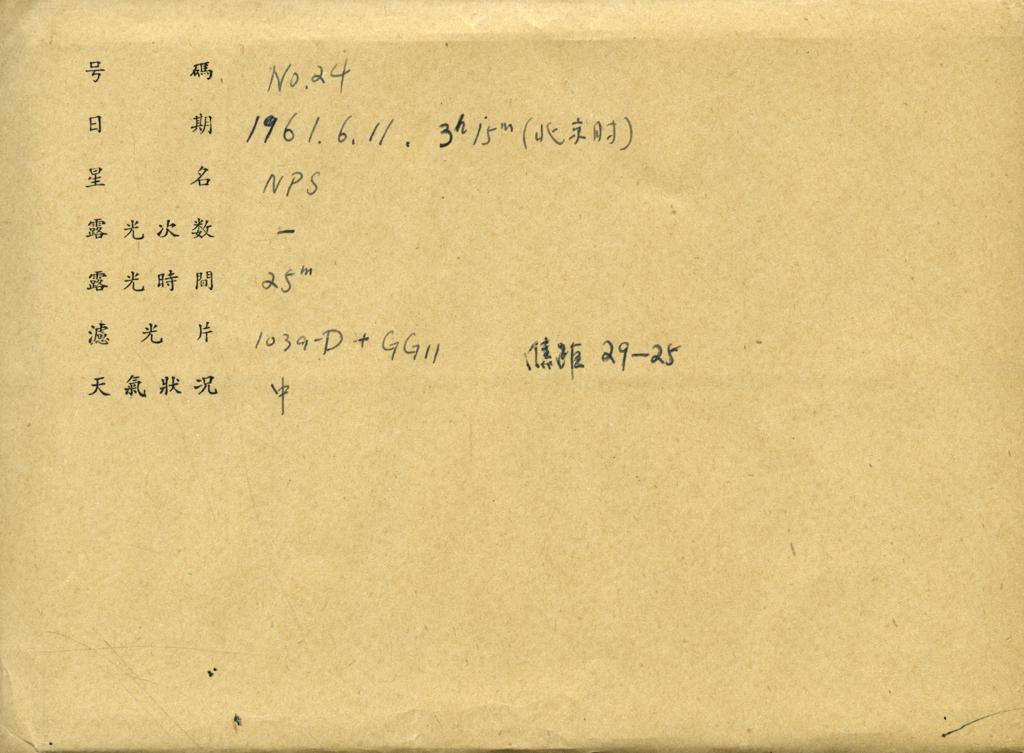 号碼 No.24
日期 1961.6.11. 3ʰ15ᵐ(北京时)
星名 NPS
露光次数 一
露光時間 25ᵐ
濾光片 103a-D + GG11 29-25
天氣狀况 中